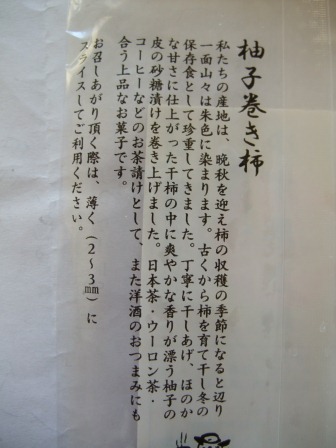 柚子巻き柿
私たちの産地は、晩秋を迎え柿の収穫の季節になると辺り
一面山々は朱色に染まります。古くから柿を育て干し冬の
保存食として珍重してきました。丁寧に干しあげ、ほのか
な甘さに仕上がった干柿の中に爽やかな香りが漂う柚子の
皮の砂糖漬けを巻き上げました。日本茶・ウーロン茶・
コーヒーなどのお茶請けとして、また洋酒のおつまみにも
合う上品なお菓子です。
お召しあがり頂く際は、薄く(2〜3㎜)に
スライスしてご利用ください。